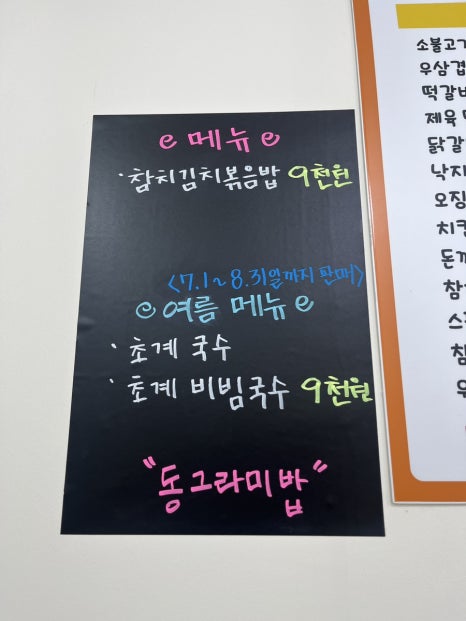 메뉴
· 참치김치볶음밥 9천원
<7.1~8.31일까지 판매>
여름 메뉴
· 초계 국수
· 초계 비빔국수 9천원
"동그라미밥"
소불고기
우삼겹
떡갈비
제육
닭갈
낙지
오징
치킨
돈까
참